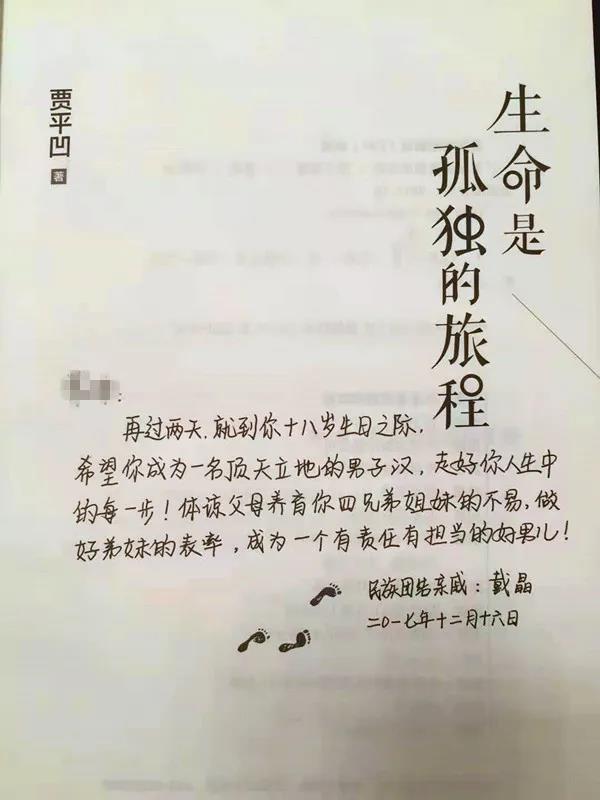 生命是
孤独的旅程
贾平凹 著
：
再过两天，就到你十八岁生日之际，
希望你成为一名顶天立地的男子汉，走好你人生中
的每一步！体谅父母养育你四兄弟姐妹的不易，做
好弟妹的表率，成为一个有责任有担当的好男儿！
民族团结亲戚：戴晶
二〇一七年十二月十六日